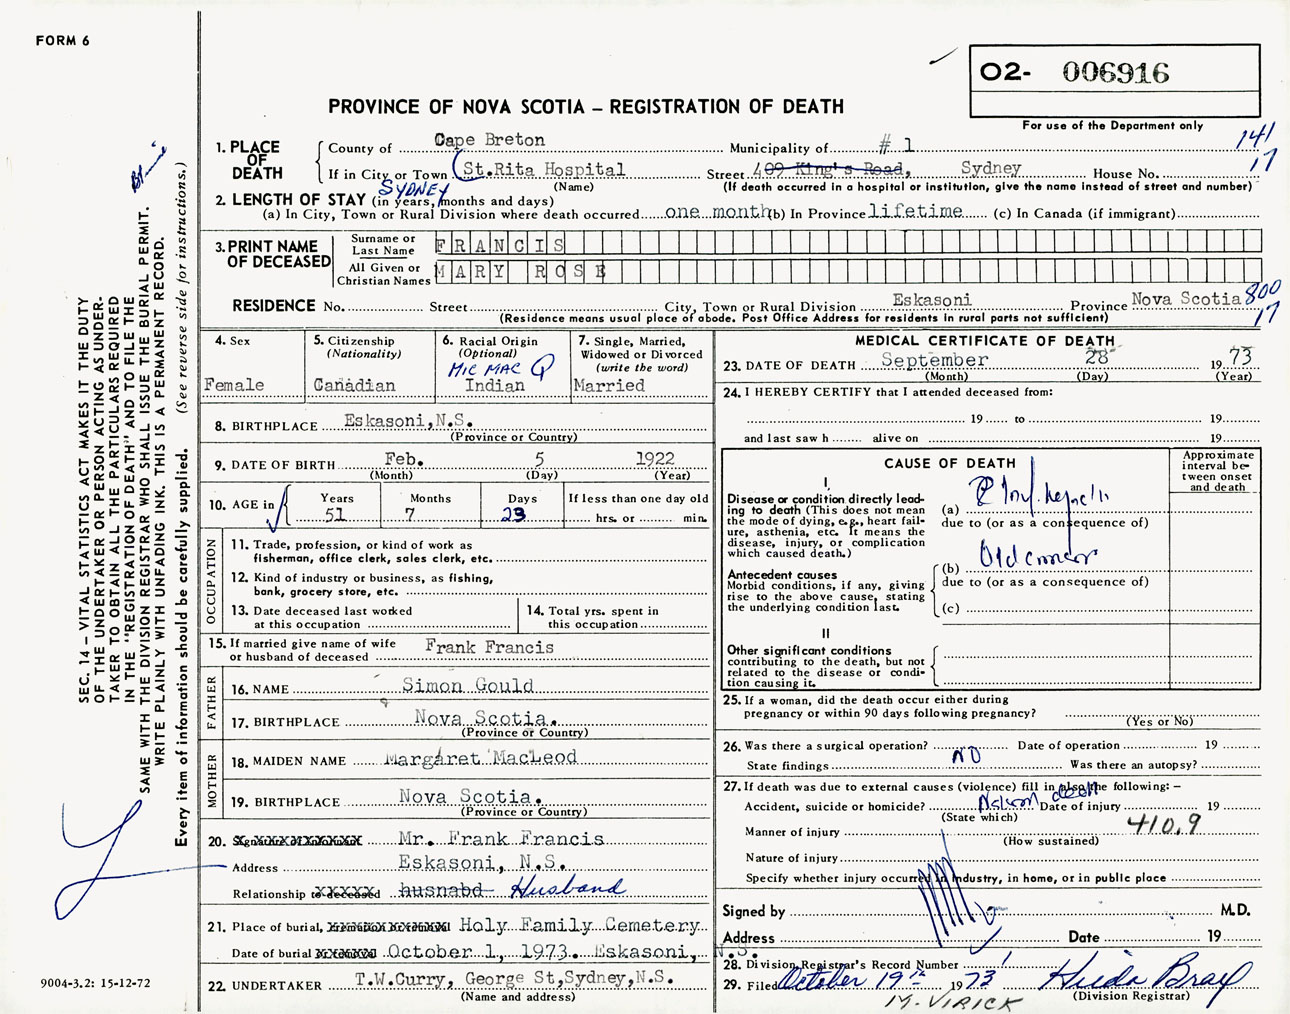 FORM 6
O2- 006916
PROVINCE OF NOVA SCOTIA – REGISTRATION OF DEATH
For use of the Department only
1. PLACE OF DEATH
County of Cape Breton Municipality of # 1 141
If in City or Town St.Rita Hospital Street 409 King's Road, Sydney House No. 17
SYDNEY (Name) (If death occurred in a hospital or institution, give the name instead of street and number)
2. LENGTH OF STAY (in years, months and days)
(a) In City, Town or Rural Division where death occurred one month (b) In Province lifetime (c) In Canada (if immigrant)
3. PRINT NAME OF DECEASED
Surname or Last Name FRANCIS
All Given or Christian Names MARY ROSE
RESIDENCE No. Street City, Town or Rural Division Eskasoni Province Nova Scotia 800
(Residence means usual place of abode. Post Office Address for residents in rural parts not sufficient) 17
4. Sex
Female
5. Citizenship (Nationality)
Canadian
6. Racial Origin (Optional)
MIC MAC
Indian
7. Single, Married, Widowed or Divorced (write the word)
Married
8. BIRTHPLACE Eskasoni,N.S.
(Province or Country)
9. DATE OF BIRTH Feb. 5 1922
(Month) (Day) (Year)
10. AGE in Years Months Days If less than one day old
51 7 23 hrs. or min.
OCCUPATION
11. Trade, profession, or kind of work as fisherman, office clerk, sales clerk, etc.
12. Kind of industry or business, as fishing, bank, grocery store, etc.
13. Date deceased last worked at this occupation
14. Total yrs. spent in this occupation
15. If married give name of wife or husband of deceased Frank Francis
FATHER
16. NAME Simon Gould
17. BIRTHPLACE Nova Scotia.
(Province or Country)
MOTHER
18. MAIDEN NAME Margaret MacLeod
19. BIRTHPLACE Nova Scotia.
(Province or Country)
20. Mr. Frank Francis
Address Eskasoni, N.S.
Relationship to deceased husnabd Husband
21. Place of burial, Holy Family Cemetery
Date of burial October 1, 1973. Eskasoni, N.S.
22. UNDERTAKER T.W.Curry, George St,Sydney,N.S.
(Name and address)
MEDICAL CERTIFICATE OF DEATH
23. DATE OF DEATH September 28 1973
(Month) (Day) (Year)
24. I HEREBY CERTIFY that I attended deceased from:
19 to 19
and last saw h alive on 19
CAUSE OF DEATH
Approximate interval between onset and death
I
Disease or condition directly leading to death (This does not mean the mode of dying, e.g., heart failure, asthenia, etc. It means the disease, injury, or complication which caused death.)
(a)
due to (or as a consequence of)
Antecedent causes
Morbid conditions, if any, giving rise to the above cause, stating the underlying condition last.
(b) Old
due to (or as a consequence of)
(c)
II
Other significant conditions contributing to the death, but not related to the disease or condition causing it.
25. If a woman, did the death occur either during pregnancy or within 90 days following pregnancy?
(Yes or No)
26. Was there a surgical operation? NO Date of operation 19
State findings Was there an autopsy?
27. If death was due to external causes (violence) fill in also the following: –
Accident, suicide or homicide? death Date of injury 19
(State which)
Manner of injury 410.9
(How sustained)
Nature of injury
Specify whether injury occurred in industry, in home, or in public place
Signed by M.D.
Address Date 19
28. Division Registrar's Record Number
29. Filed October 19th 1973 Hilda Bray
M. VIRICK (Division Registrar)
SEC. 14 – VITAL STATISTICS ACT MAKES IT THE DUTY
OF THE UNDERTAKER OR PERSON ACTING AS UNDER-
TAKER TO OBTAIN ALL THE PARTICULARS REQUIRED
IN THE "REGISTRATION OF DEATH" AND TO FILE THE
SAME WITH THE DIVISION REGISTRAR WHO SHALL ISSUE THE BURIAL PERMIT.
WRITE PLAINLY WITH UNFADING INK. THIS IS A PERMANENT RECORD.
Every item of information should be carefully supplied. (See reverse side for instructions.)
9004-3.2: 15-12-72